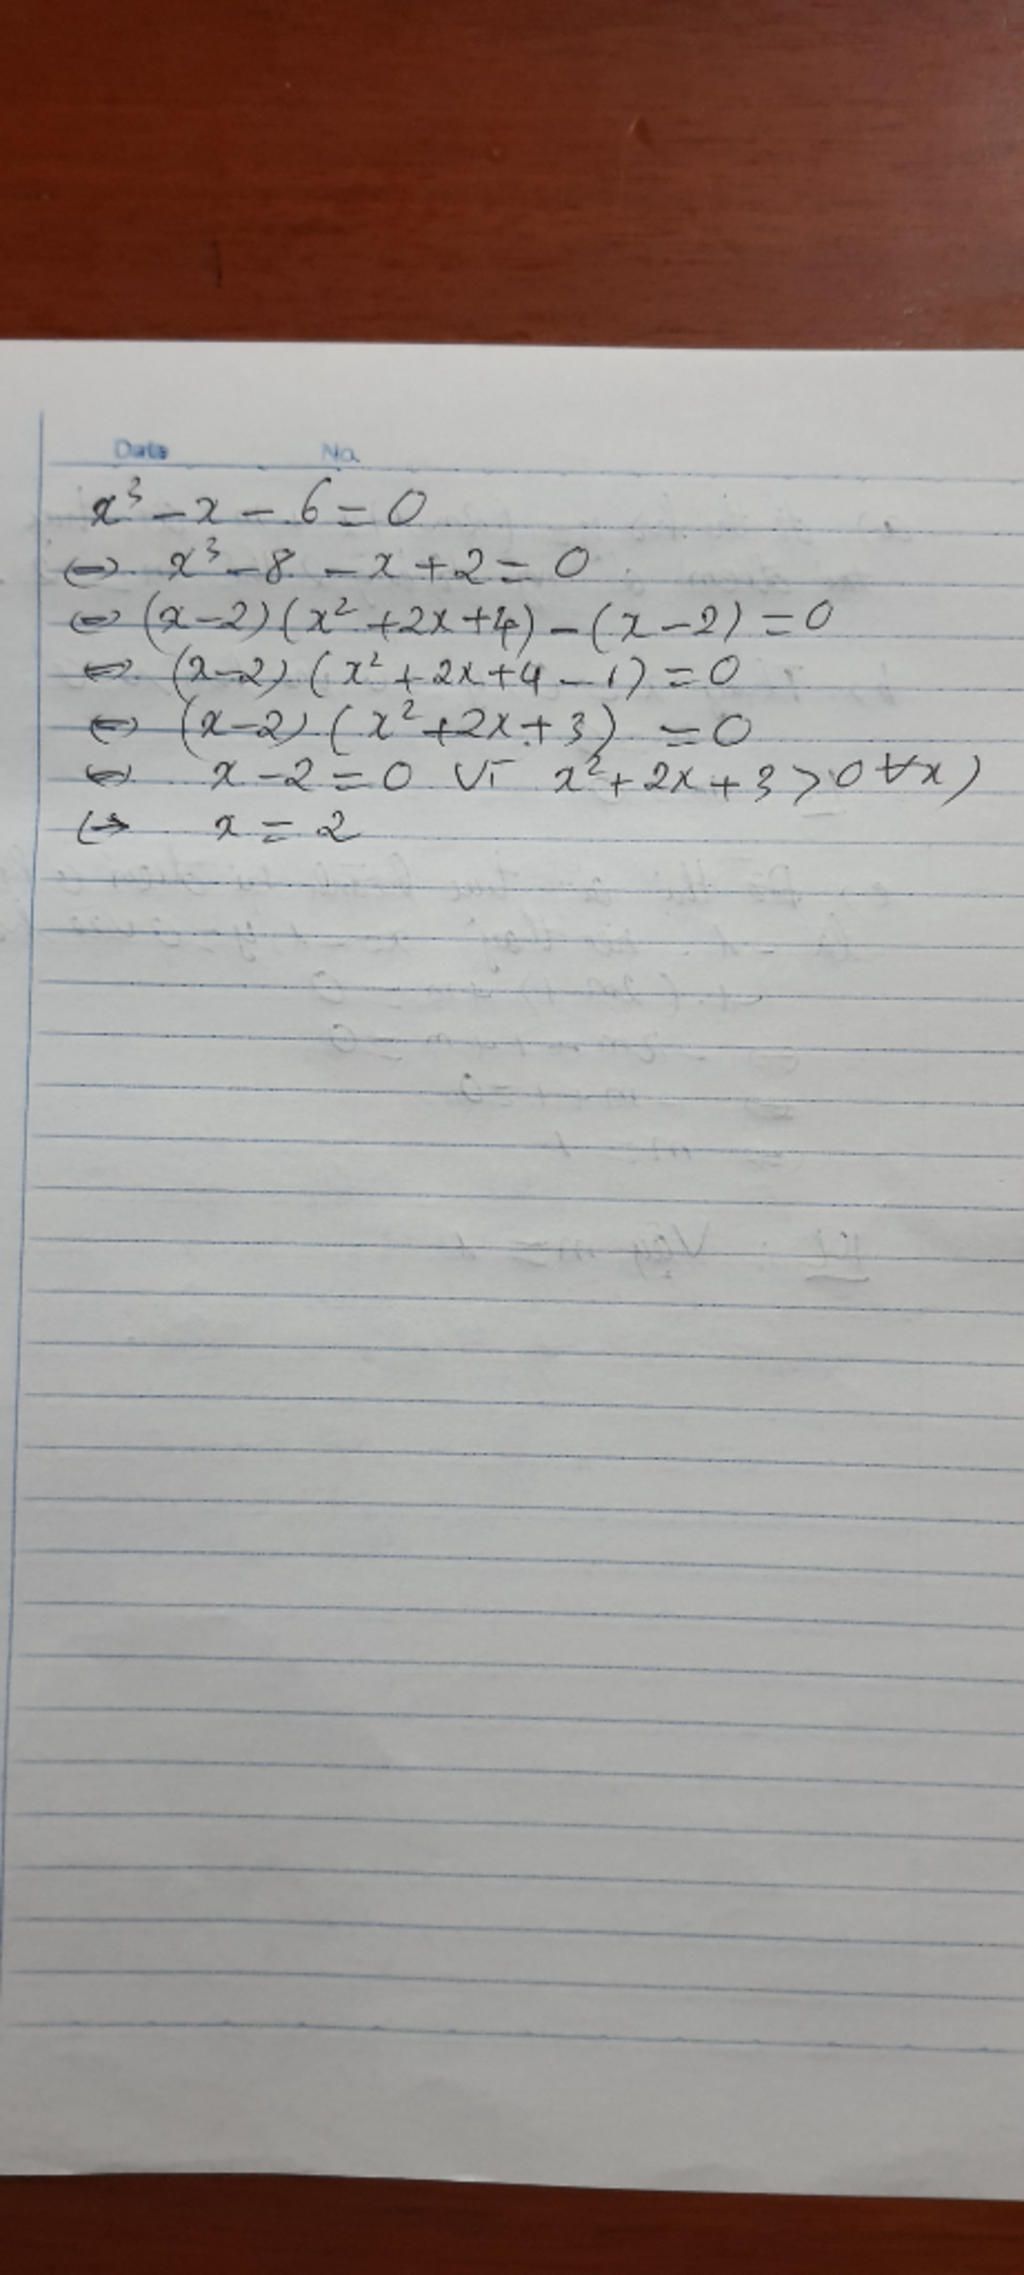 Date No.
x³ - x - 6 = 0
⇔ x³ - 8 - x + 2 = 0
⇔ (x-2)(x² + 2x + 4) - (x - 2) = 0
⇔ (x-2) (x² + 2x + 4 - 1) = 0
⇔ (x-2) (x² + 2x + 3) = 0
⇔ x - 2 = 0 vì x² + 2x + 3 > 0 ∀x)
⇔ x = 2